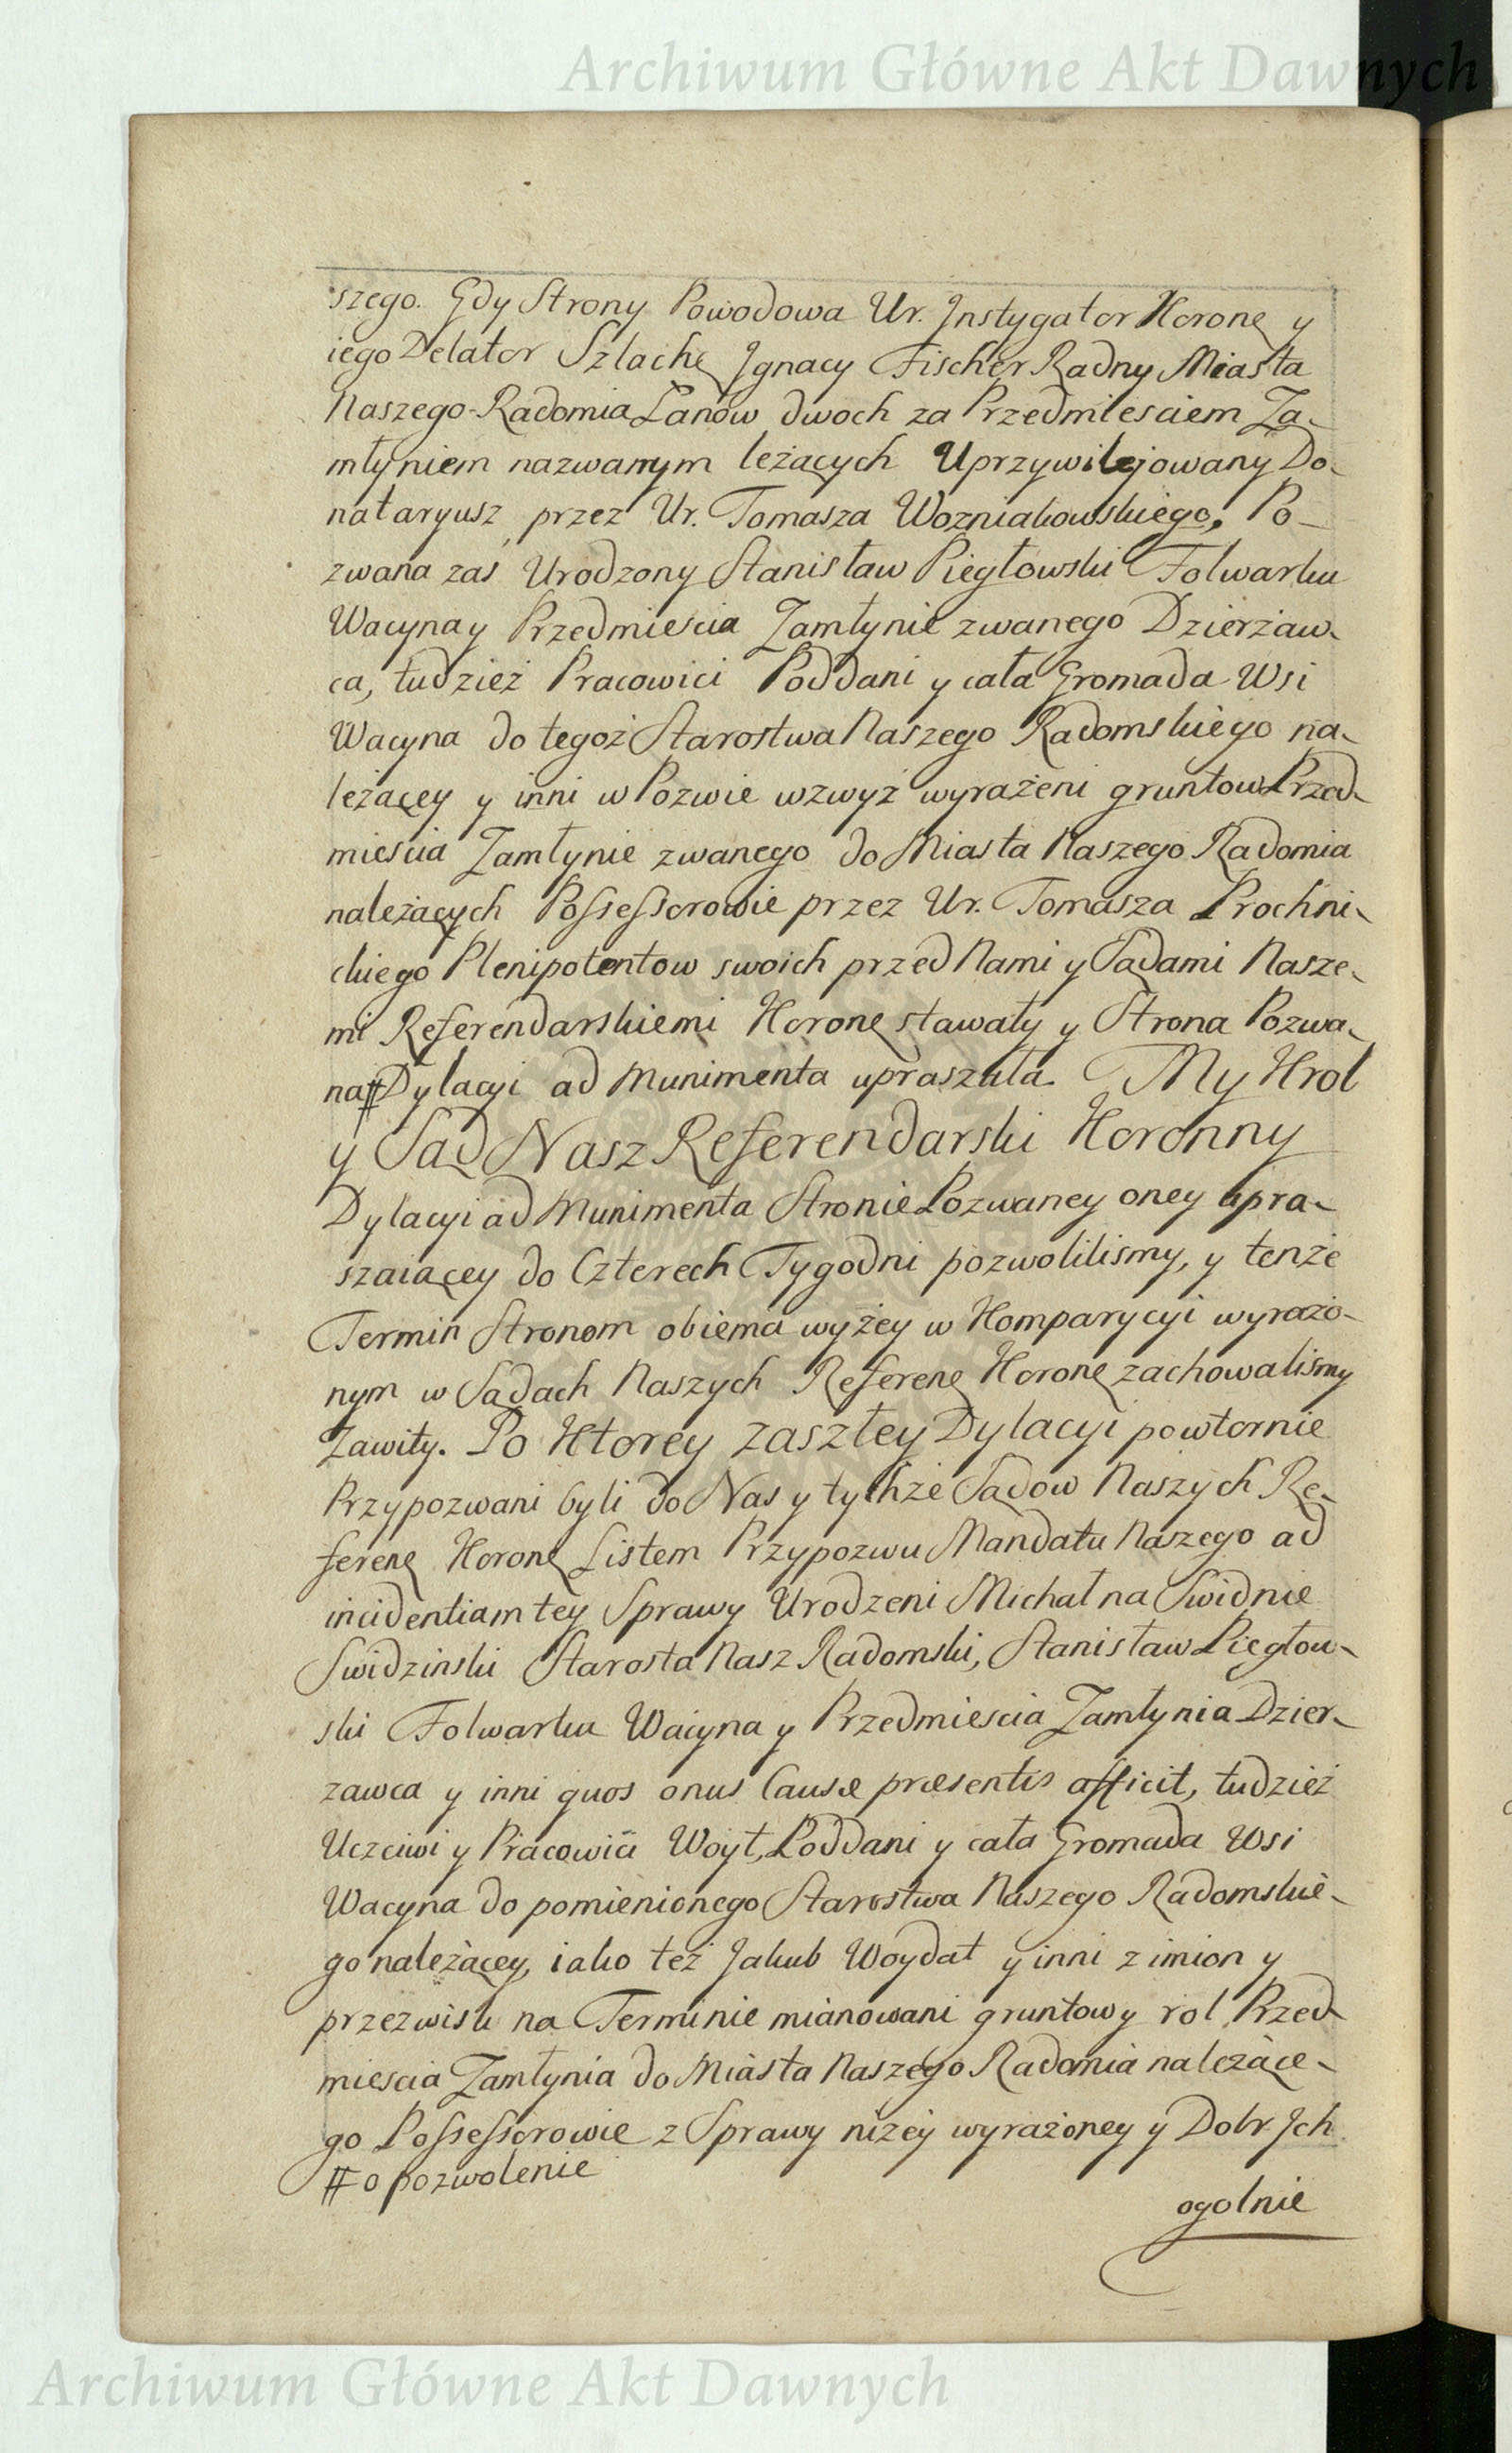 Archiwum Główne Akt Dawnych
szego. Gdy Strony Powodowa Ur. Instygator Korone y
iego Delator Szlache Ignacy Fischer Radny Miasta
Naszego Radomia Łanow dwoch za Przedmiesciem Za-
młyniem nazwanym leżących Uprzywilejowany Do-
nataryusz przez Ur. Tomasza Wozniakowskiego, Po-
zwana zas Urodzony Stanisław Piegłowski Folwarku
Wacyna y Przedmiescia Zamłynie zwanego Dzierżaw-
ca, tudzież Pracowici Poddani y cała Gromada Wsi
Wacyna do tegoż Starostwa Naszego Radomskiego na-
leżącey y inni w Pozwie wzwyż wyrażeni gruntow Przed-
miescia Zamłynie zwanego do Miasta Naszego Radomia
należących Possessorowie przez Ur. Tomasza Prochni-
ckiego Plenipotentow swoich przed Nami y Sądami Nasze-
mi Referendarskiemi Korone stawały y Strona Pozwa-
na # Dylacyi ad Munimenta upraszała. My Krol
y Sąd Nasz Referendarski Koronny
Dylacyi ad Munimenta Stronie Pozwaney oney upra-
szaiącey do Czterech Tygodni pozwolilismy, y tenże
Termin Stronom obiema wyżey w Komparycyi wyrażo-
nym w Sądach Naszych Referene Korone zachowalismy
Zawity. Po Ktorey zaszłey Dylacyi powtornie
Przypozwani byli do Nas y tychże Sądow Naszych Re-
ferene Korone Listem Przypozwu Mandatu Naszego ad
incidentiam tey Sprawy Urodzeni Michał na Swidnie
Swidzinski Starosta Nasz Radomski, Stanisław Piegłow-
ski Folwarku Wacyna y Przedmiescia Zamłynia Dzier-
zawca y inni quos onus Causæ præsentis afficit, tudzież
Uczciwi y Pracowici Woyt, Poddani y cała Gromada Wsi
Wacyna do pomienionego Starostwa Naszego Radomskie-
go należącey, iako też Jakub Woydat y inni z imion y
przezwisk na Terminie mianowani gruntow y rol Przed-
miescia Zamłynia do Miasta Naszego Radomia należące-
go Possessorowie z Sprawy niżey wyrażoney y Dobr Ich
# o pozwolenie
ogolnie
Archiwum Główne Akt Dawnych